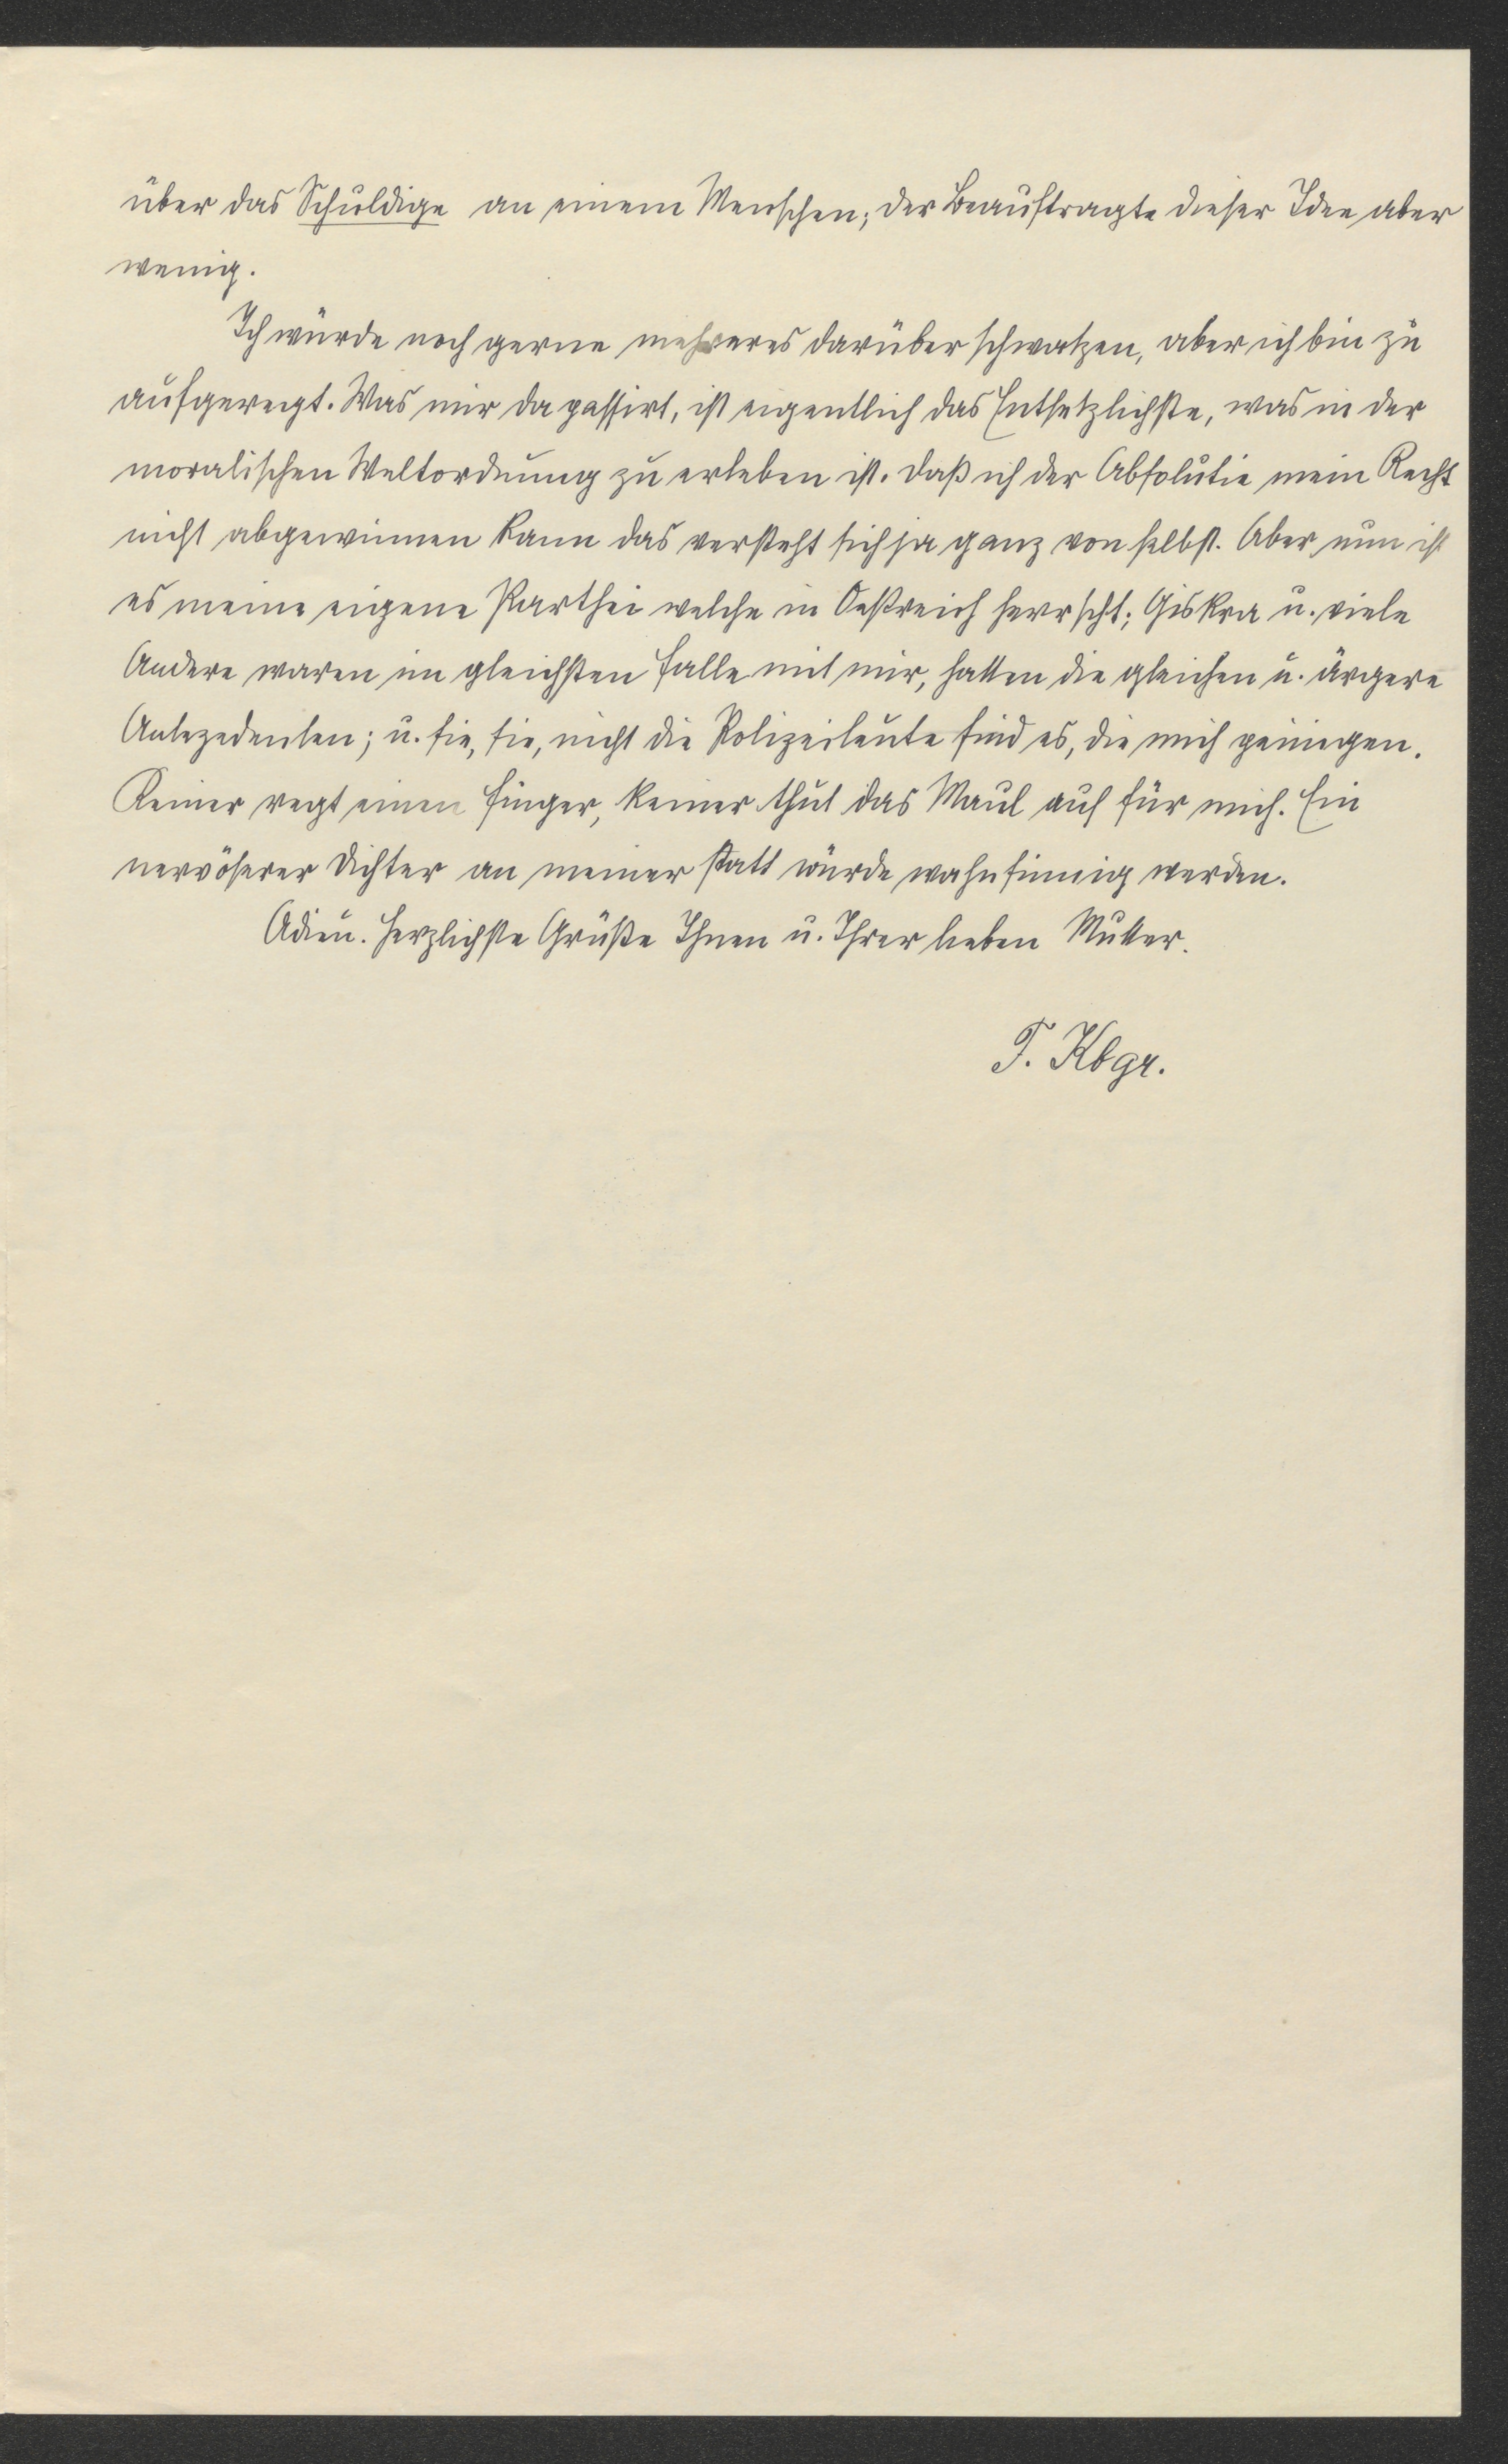 über das Schuldige an einem Menschen; der Beauftragte dieser Idee aber
wenig.
Ich würde noch gerne mehreres darüber schwatzen, aber ich bin zu
aufgeregt. Was mir da passirt, ist eigentlich das Entsetzlichste, was in der
moralischen Weltordnung zu erleben ist. Daß ich der Absolutie mein Recht
nicht abgewinnen kann das versteht sich ja ganz von selbst. Aber nun ist
es meine eigene Parthei welche in Oestreich herrscht; Giskra u. viele
Andere waren im gleichsten Falle mit mir, hatten die gleichen u. ärgere
Antezedenten; u. sie, sie, nicht die Polizeileute sind es, die mich peinigen.
Keiner regt einen Finger, keiner thut das Maul auf für mich. Ein
nervöserer Dichter an meiner statt würde wahnsinnig werden.
Adieu. Herzlichste Grüße Ihnen u. Ihrer lieben Mutter.
F. Kbgr.